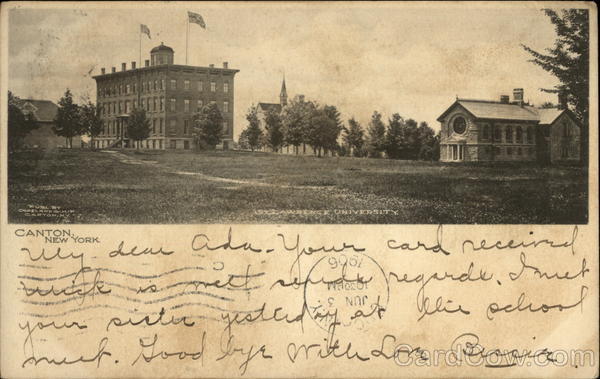 PUBL BY
CANTON, N.Y.
ST. LAWRENCE UNIVERSITY
CANTON,
NEW YORK.
My dear Ada - Your card received
is well sends regards. I met
your sister yesterday at the school
meet. Good bye With Love
JUN 3
1906
CardCow.com